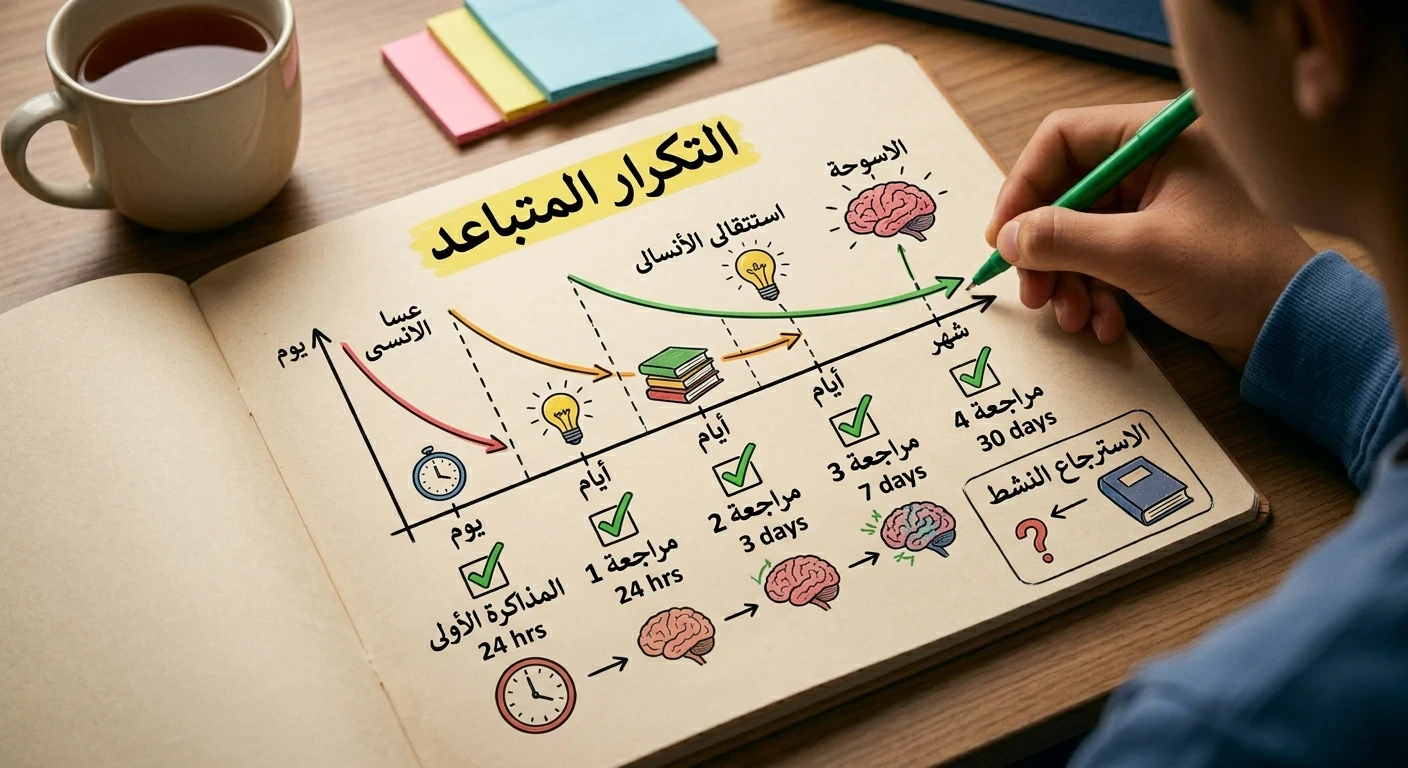 التكرار المتباعد
الاسوحة
استتقالى الأنسالى
عسا
الانسى
يوم
يوم
أيام
أيام
أيام
شهر
المذاكرة الأولى
24 hrs
مراجعة 1
24 hrs
مراجعة 2
3 days
مراجعة 3
7 days
مراجعة 4
30 days
الاسترجاع النشط
?